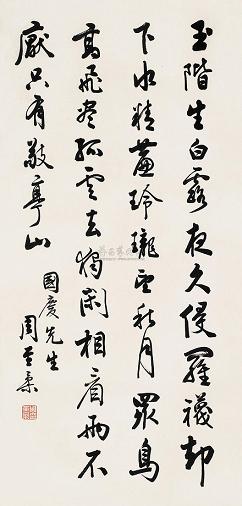 玉階生白露夜久侵羅襪却
下水精簾玲瓏望秋月眾鳥
高飛盡孤雲去獨閑相看兩不
厭只有敬亭山
國慶先生
周慧珺